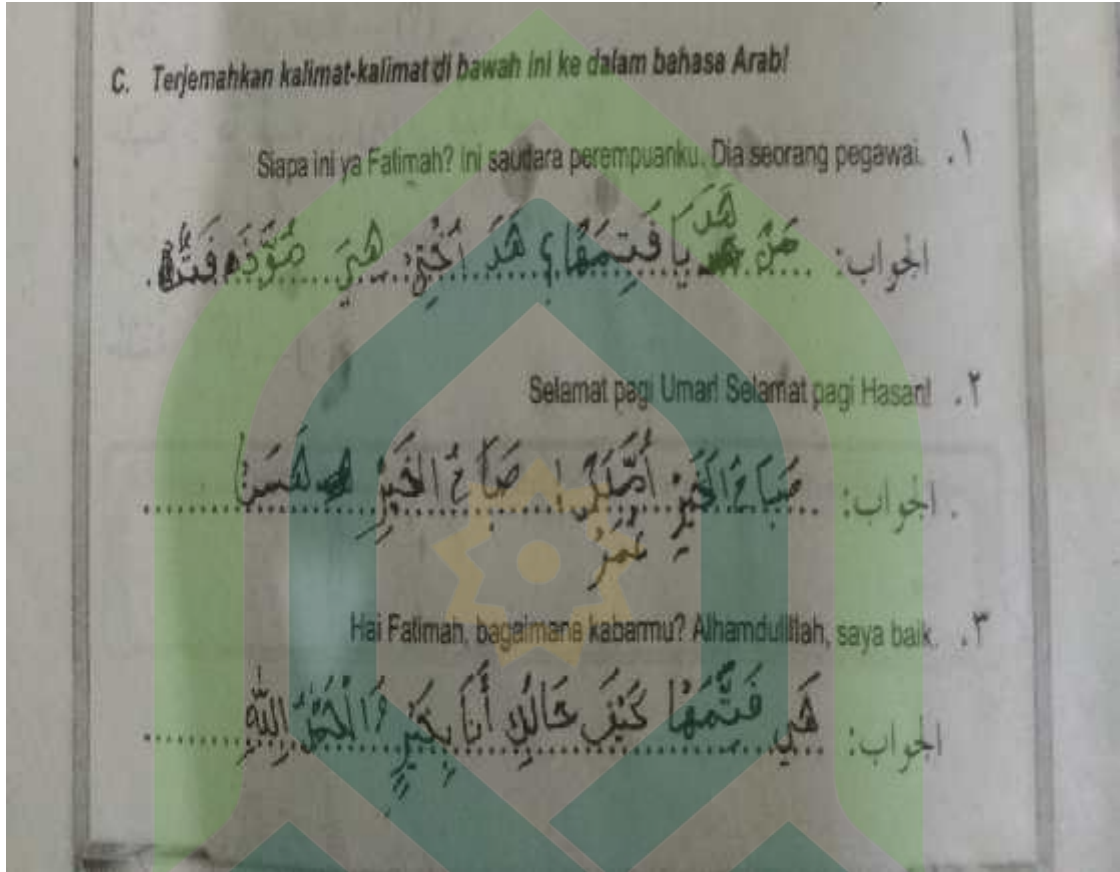 C. Terjemahkan kalimat-kalimat di bawah ini ke dalam bahasa Arab!
Siapa ini ya Fatimah? Ini saudara perempuanku. Dia seorang pegawai. .١
الجواب: مَنْ هَدَ يَا فَتِمَهَا؟ هَدَ اُخْتِيْ هِيَ
Selamat pagi Umar! Selamat pagi Hasan! .٢
الجواب: صَبَاحُ الْخَيْرِ ! صَبَاحُ الْخَيْرِ هَسَنْ
عُمَرُ
Hai Fatimah, bagaimana kabarmu? Alhamdulillah, saya baik. .٣
الجواب: هَي فَتِّمَهَا كَيْفَ أَنَا بِخَيْرٍ